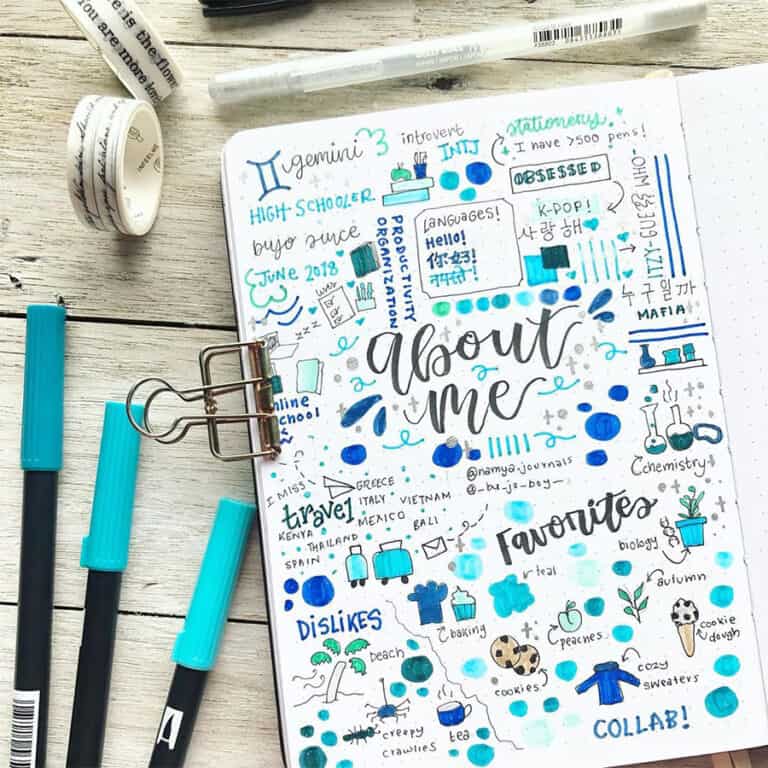 is the flow
you are more
gemini
introvert
INTJ
stationery
I have >500 pens!
OBSESSED
HIGH-SCHOOLER
bujo since
JUNE 2018
PRODUCTIVITY
ORGANIZATION
LANGUAGES!
Hello!
你好!
नमस्ते!
K-POP!
사랑해
ITZY-GUESS WHO-
누구일까
MAFIA
zzz
online
school
about
me
@namya.journals
@_bu_jo_boy_
chemistry
I MISS
travel
GREECE
ITALY
VIETNAM
MEXICO
BALI
KENYA
THAILAND
SPAIN
Favorites
teal
biology
autumn
baking
peaches
cookie
dough
cookies
cozy
sweaters
DISLIKES
beach
creepy
crawlies
tea
COLLAB!